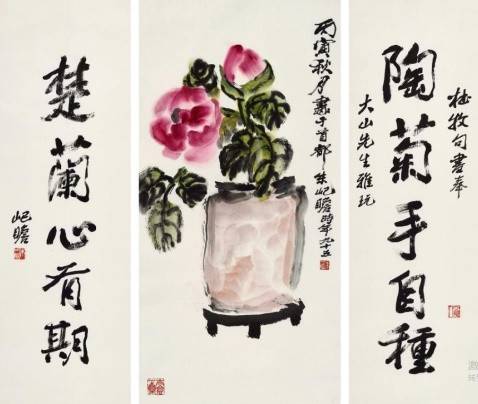 杜牧句書奉
陶菊手自種
大山先生雅玩
丙寅秋月畫于首都朱屺瞻時年九十五
楚蘭心有期
屺瞻